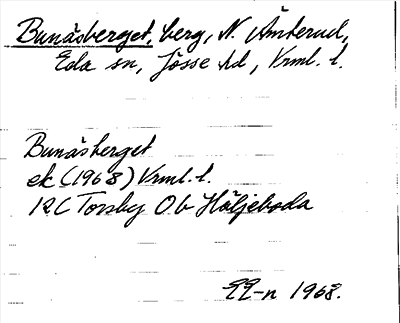 Bunäsberget, berg, N. Åmterud,
Eda sn, Jösse hd, Vrml. l.
Bunäsberget
ek (1968) Vrml. l.
12C Torsby Ob Häljeboda
1968.